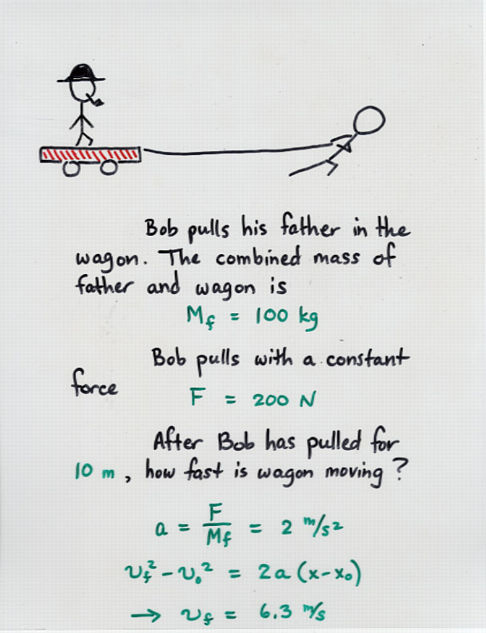 Bob pulls his father in the
wagon. The combined mass of
father and wagon is
M_f = 100 kg
Bob pulls with a constant
force
F = 200 N
After Bob has pulled for
10 m, how fast is wagon moving?
a = F/M_f = 2 m/s²
v_f² - v_o² = 2a (x-x_o)
→ v_f = 6.3 m/s